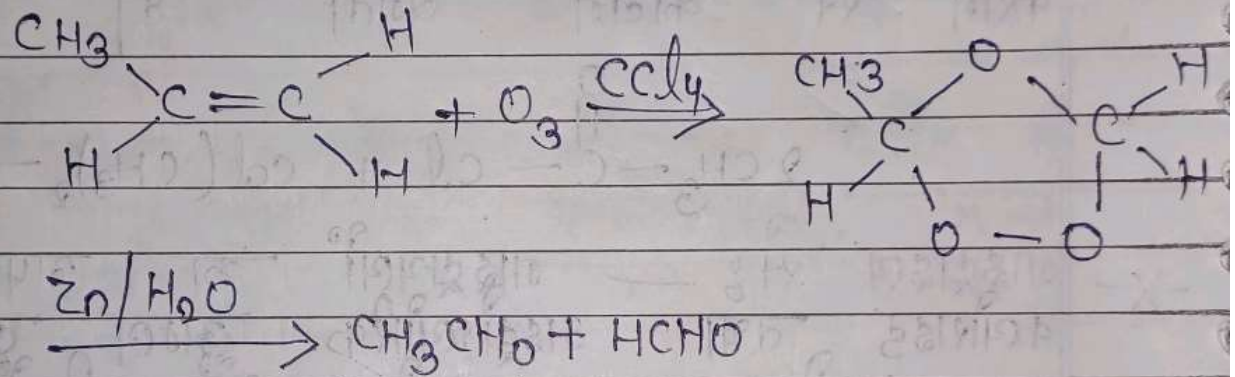 CH3 H
C = C + O3 CCl4 → CH3 O H
H H C C H
H O — O
Zn/H2O → CH3CHO + HCHO